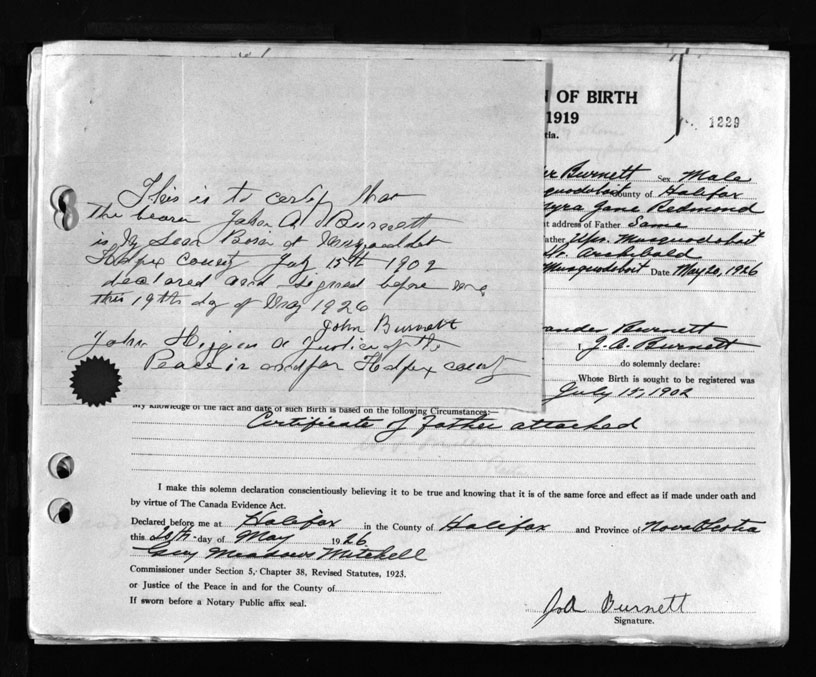 This is to certify that
the bearer John A. Burnett
is My Son Born at Musquodobit
Halifax County July 15th 1902
declared and signed before me
this 19th day of May 1926
John Burnett
John Higgins a Justice of the
Peace in and for Halifax county
OF BIRTH
1919
1229
Burnett Sex Male
County of Halifax
Myra Jane Redmond
address of Father Same
Upr. Musquodoboit
Archibald
Musquodoboit Date May 20, 1926
ander Burnett
I, J. A. Burnett
do solemnly declare:
Whose Birth is sought to be registered was
July 15, 1902
My knowledge of the fact and date of such Birth is based on the following Circumstances:—
Certificate of Father attached
I make this solemn declaration conscientiously believing it to be true and knowing that it is of the same force and effect as if made under oath and
by virtue of The Canada Evidence Act.
Declared before me at Halifax in the County of Halifax and Province of Nova Scotia
this 20th day of May 1926
Guy Meadows Mitchell
Commissioner under Section 5, Chapter 38, Revised Statutes, 1923.
or Justice of the Peace in and for the County of
If sworn before a Notary Public affix seal.
J. A. Burnett
Signature.